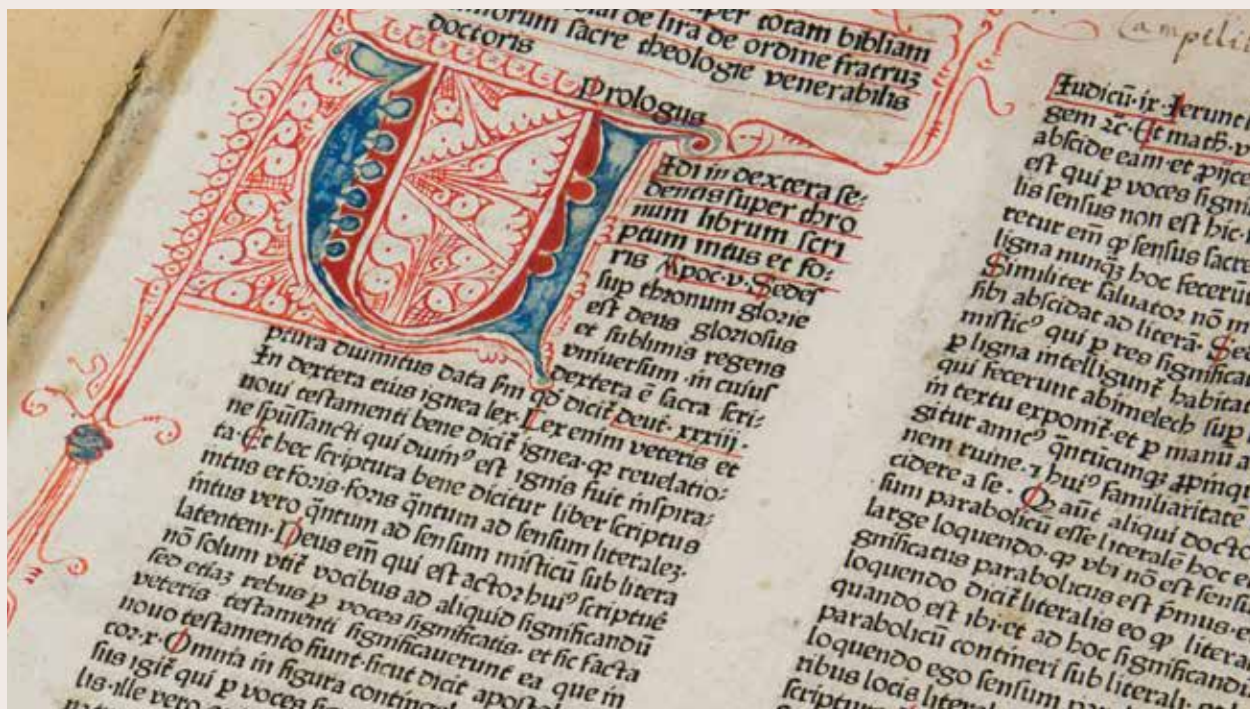 super totam bibliam
de lira de ordine fratruʒ
minorum sacre theologie venerabilis
doctoris
Prologus
Idi in dextera se⸗
dentis super thro
num librum scri
ptum intus et fo⸗
ris Apoc·v·Sedes
sup thronum glorie
est deus gloriosus
et sublimis regens
vniversum·in cuius
dextera ē sacra scri⸗
ptura diuinitus data sm̄ qd̄ dicit̄ deut·xxxiij·
In dextera eius ignea lex·Lex enim veteris et
noui testamenti bene dicit̄ ignea·qꝛ reuelatio⸗
ne spūssancti qui diuinꝰ est ignis fuit inspira⸗
ta·Et hec scriptura bene dicitur liber scriptus
intus et foris·foris q̄ntum ad sensum literaleʒ·
intus vero q̄ntum ad sensum misticū sub litera
latentem·Deus em̄ qui est actor huiꝰ scripture
nō solum vtit̄ vocibus ad aliquid significandū
sed etiaʒ rebus p voces significatis·et sic facta
veteris testamenti significauerunt ea que in
nouo testamento fiunt·sicut dicit apostol
cor·x·Omnia in figura conting
sus igit̄ qui p voces
lis·ille vero
Campeli
Iudicū·ix·Ierunt
gem ⁊c·Et math·v
abscide eam·et ꝓijce
est qui p voces signi
lis sensus non est hic·
retur em̄ ꝙ sensus sacre
ligna nunqʒ hoc fecerūt
Similiter saluator nō m
sibi abscidat ad literā·Sed
misticꝰ qui p res significat
p ligna intelligunt̄ habitat
qui fecerunt abimelech sup
in textu exponit̄·et p manū a
gitur amicꝰ q̄ntūcunqʒ ꝓpinqu
nem ruine·⁊ huiꝰ familiaritatē
cidere a se·Qꝛ aūt aliqui docto
sum parabolicū esse literalē hoc e
large loquendo·qꝛ vbi nō est sensu
gnificatus parabolicus est pꝛimus·e
loquendo dicit̄ literalis eo ꝙ litera
quando est ibi·et ad hoc significandū
parabolicū contineri sub literali·
loquendo ego sensum par
ribus locis literal
scriptur